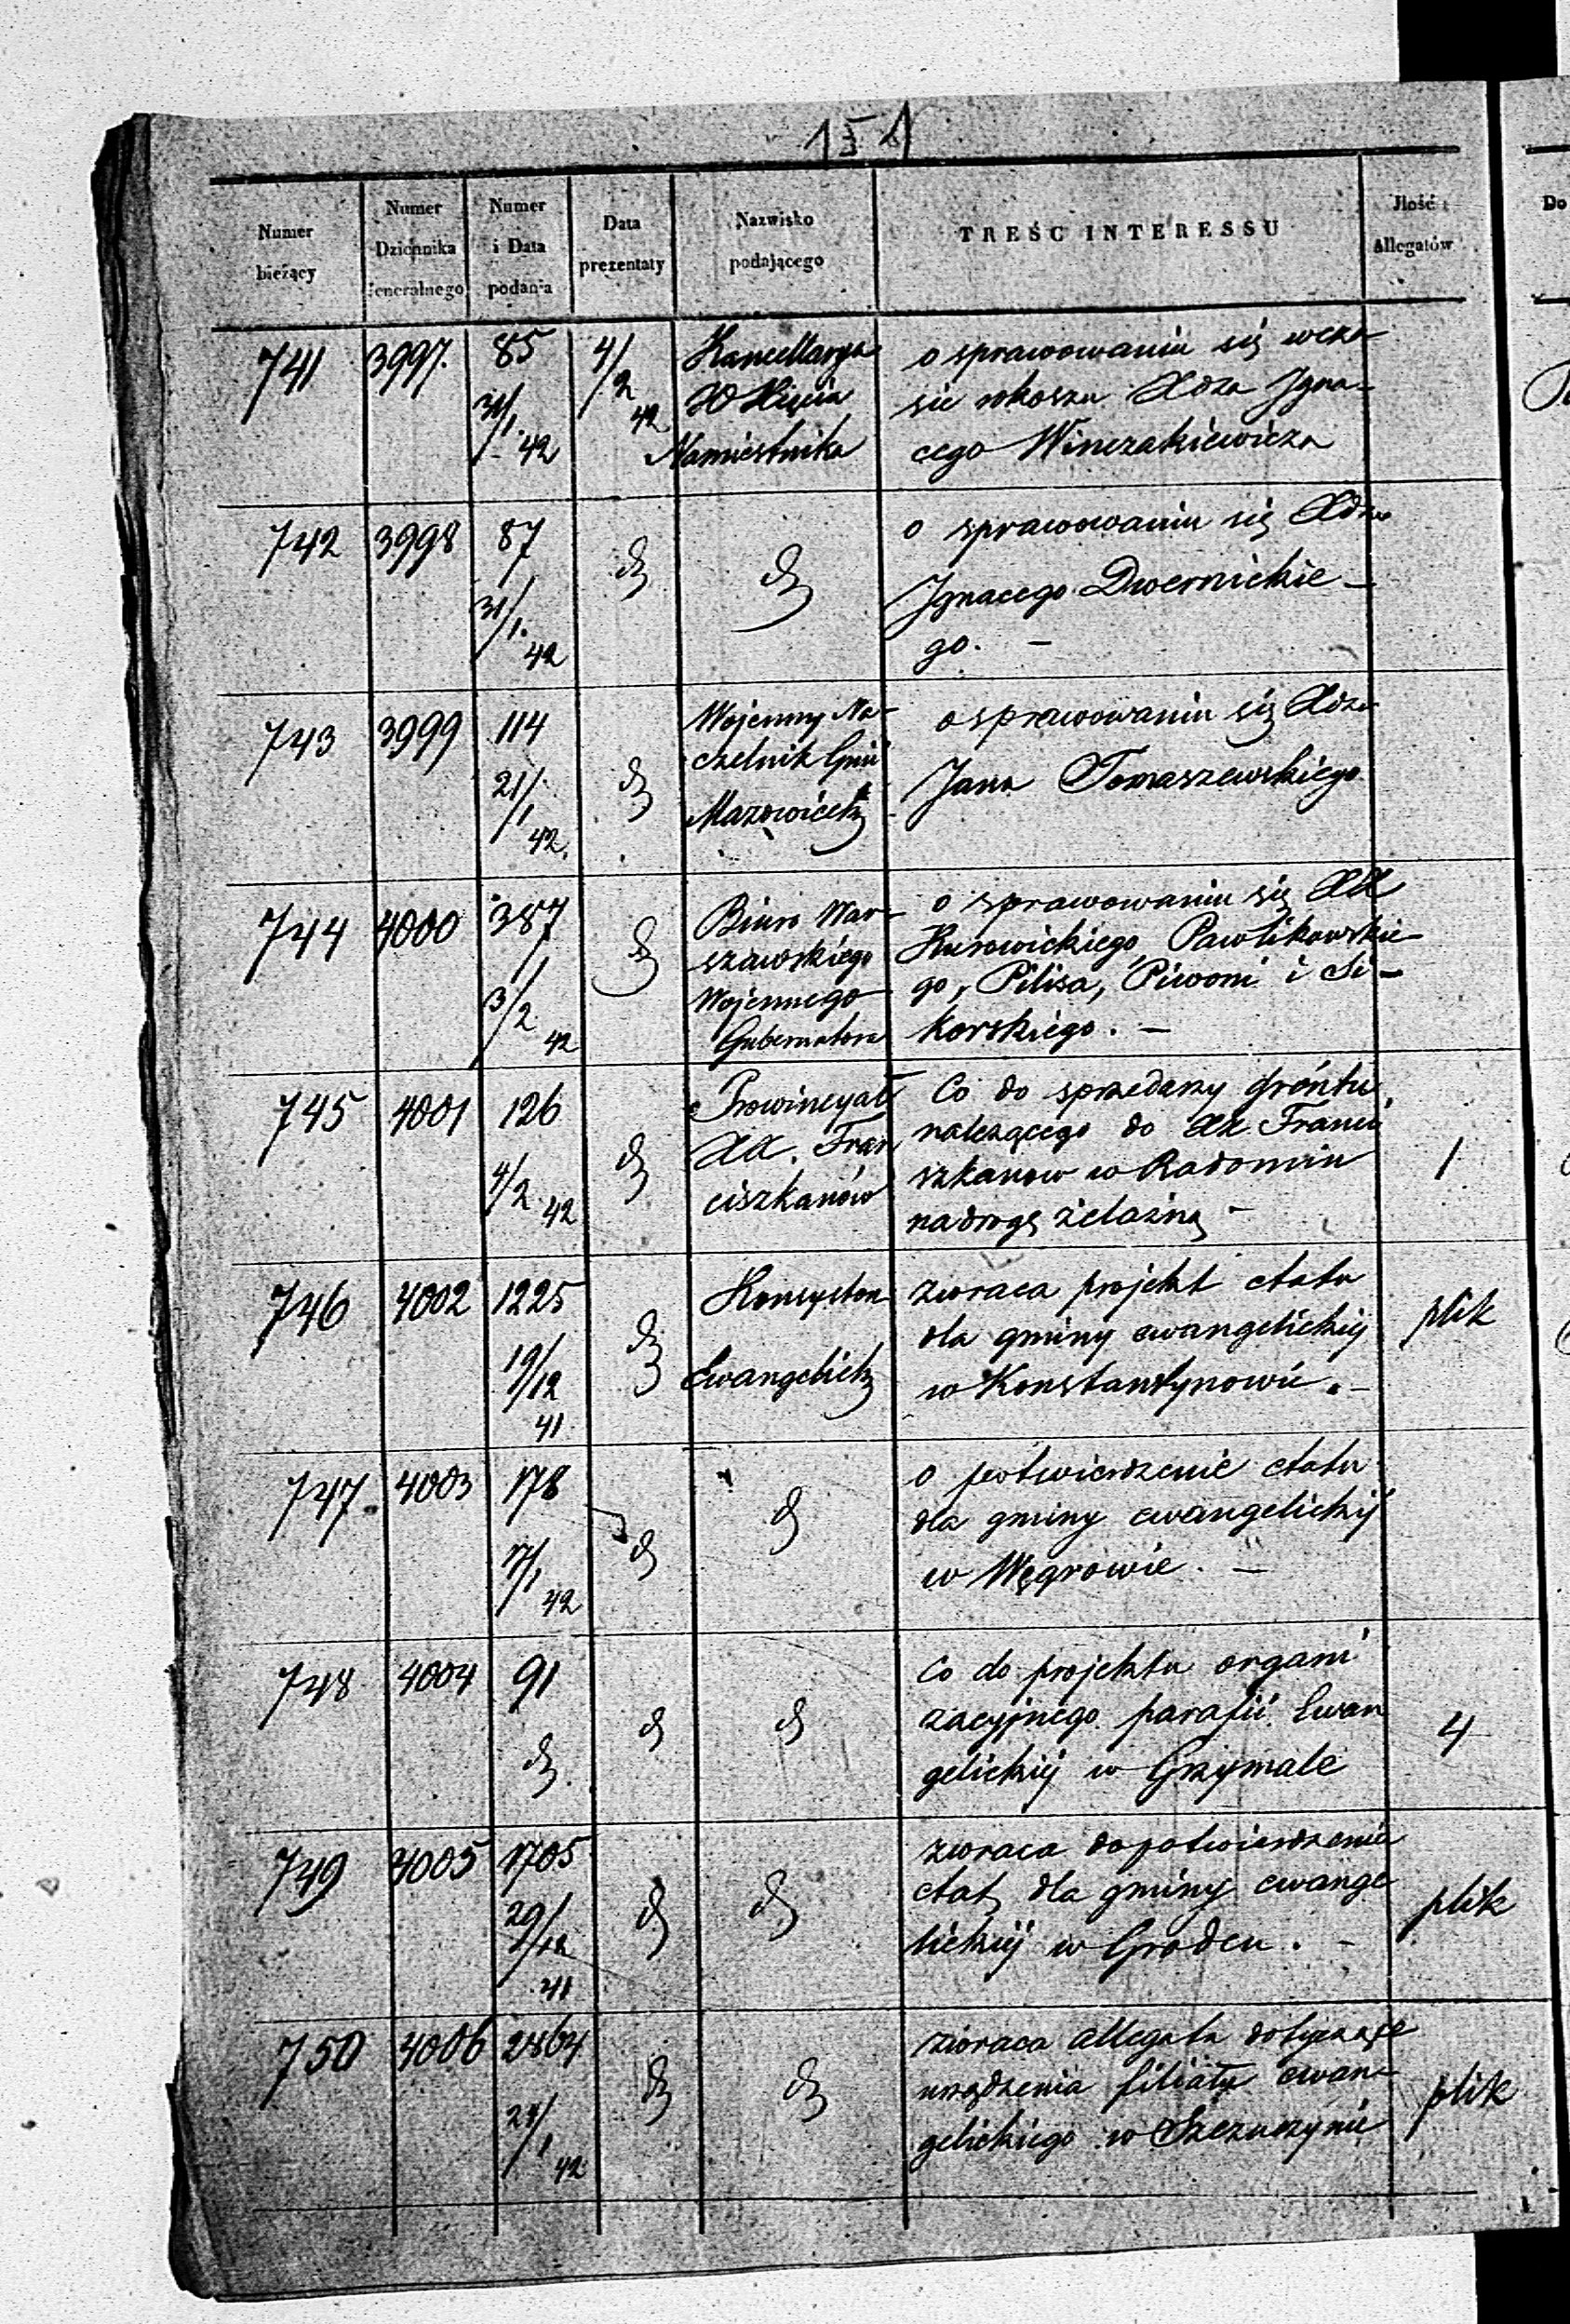 151
Numer bieżący
Numer Dziennika Jeneralnego
Numer i Data podania
Data prezentaty
Nazwisko podającego
TREŚĆ INTERESSU
Jlość Allegatów
Do
741 3997. 85 31/1. 42 4/2 42
Kancellarya
JO Xięcia
Namiestnika
o sprawowaniu się wcza
sie rokoszu Xdza Igna-
cego Winczakiewicza
742 3998 87 31/1. 42 dz dz
o sprawowaniu się Xdza
Ignacego Dwernickie-
go. -
743 3999 114 21/1 42. dz
Wojenny Na-
czelnik Gnii
Mazowieck
o sprawowaniu się Xdza
Jana Tomaszewskiego
744 4000 387 3/2 42 dz
Biuro War-
szawskiego
Wojennego
Gubernatora
o sprawowaniu się XX
Kurowickiego, Pawlikowskie-
go, Pilisa, Piwoni i Si-
korskiego. -
745 4001 126 4/2 42 dz
Prowincyał
XX. Fran
ciszkanów
Co do sprzedaży gróntu
należącego do XX Franci
szkanow w Radomiu
na drogę żelazną -
1
746 4002 1225 19/12 41 dz
Konsystor
Ewangelick
zwraca projekt etatu
dla gminy ewangelickiej
w Konstantynowie. -
plik
747. 4003 178 17/1 42 d d
o potwierdzenie etatu
dla gminy ewangelickij
w Węgrowie. -
748 4004 91 dz. d d
Co do projektu organi
zacyjnego parafii Ewan
gelickiej w Grzymale
4
749 4005 1705 29/12 41 d d
zwraca do potwierdzenia
etat dla gminy ewange
lickiej w Grodcu. -
plik
750 4006 2864 21/1 42 dz dz
zwraca allegata dotyczące
urządzenia filiału ewan-
gelickiego w Szczuczynie
plik